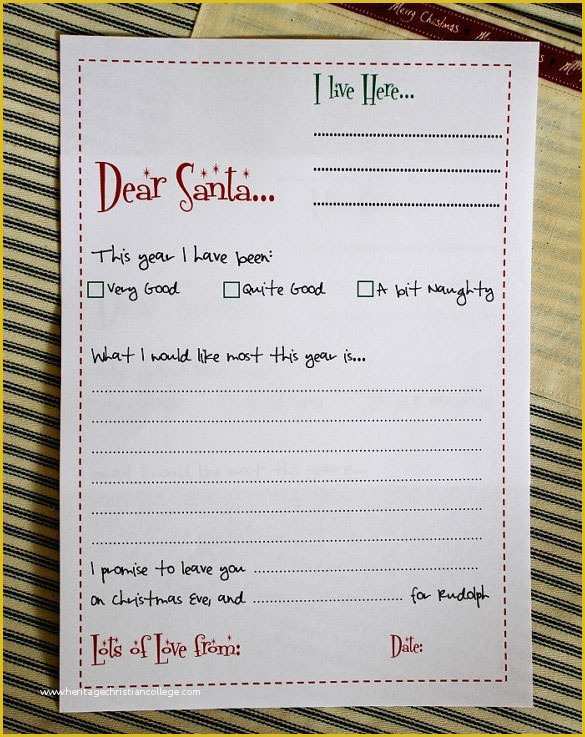 Merry Christmas
I live Here...
Dear Santa...
This year I have been:
Very Good Quite Good A bit Naughty
What I would like most this year is...
I promise to leave you
on Christmas Eve, and for Rudolph
Lots of Love from: Date:
www.heritagechristiancollege.com